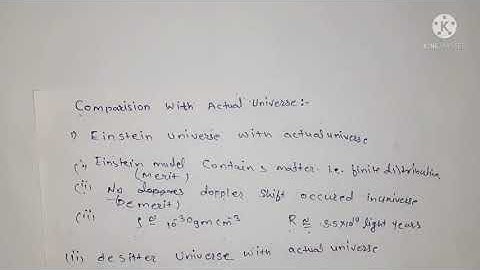 K
KINEMASTER
Comparision With Actual Universe:-
1) Einstein universe with actual universe
(i) Einstein model Contains matter i.e. finite distribution
(Merit)
(ii) No doppres doppler shift occured in universe
(Demerit)
(iii) ρ ≅ 10⁻³⁰ gm cm⁻³ R ≅ 3.5×10¹⁰ light years
(ii) desitter Universe with actual universe